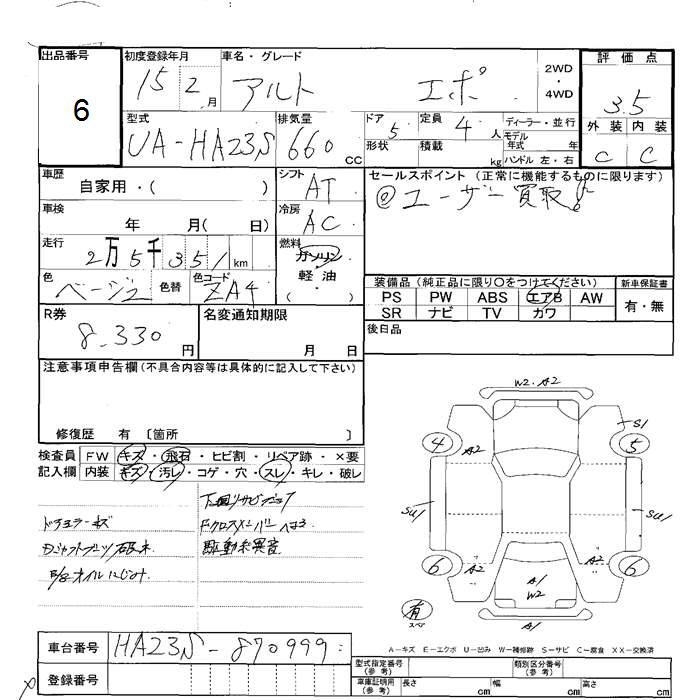 出品番号
6
初度登録年月
15 2 月
車名・グレード
アルト エポ
2WD
・
4WD
評価点
3.5
外装 内装
C C
型式
UA-HA23S
排気量
660 CC
ドア
5
定員
4 人
ディーラー・並行
モデル
年式 年
形状
積載 kg
ハンドル 左・右
車歴
自家用・( )
シフト
AT
セールスポイント (正常に機能するものに限ります)
@ユーザー買取
車検
年 月( 日)
冷房
AC
走行
2万5千351km
燃料
ガソリン
軽油
( ・ )
色
ベージュ
色替
色コード
ZA4
装備品(純正品に限り〇をつけてください)
新車保証書
PS PW ABS エアB AW
有・無
SR ナビ TV カワ
R券
8,330円
名変通知期限
月 日
後日品
注意事項申告欄(不具合内容等は具体的に記入して下さい)
修復歴 有 〔箇所 〕
検査員 FW キズ・飛石・ヒビ割・リペア跡・×要
記入欄 内装 キズ・汚レ・コゲ・穴・スレ・キレ・破レ
下回リサビ
ドラミラーキズ
Fクロスメンバーヘコミ
駆動系異音
オイルにじみ
W2.A2
S1
4
A2
5
SU1
SU1
6
A2
A2
6
A1
W2
有
スペア
A1
A-キズ E-エクボ U-凹み W-補修跡 S-サビ C-腐食 XX-交換済
車台番号
HA23S-870999
登録番号
型式指定番号
(参考)
類別区分番号
(参考)
車庫証明用
(参考)
長さ cm
幅 cm
高さ cm